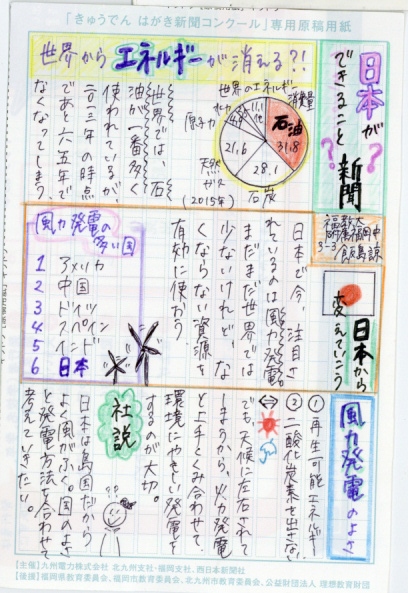 「きゅうでん はがき新聞コンクール」専用原稿用紙
日本が
できること新聞
??
福教大
福岡中
3-3 飯島諒
世界からエネルギーが消える?!
世界では、石
油が一番多く
使われているが、
二〇一三年の時点
であと六五年で
なくなってしまう。
世界のエネルギー
消費量
石油
31.8
28.1
石炭
21.6
天然
ガス
原子力
(2015年)
日本から
変えていこう
日本で今、注目さ
れているのは風力発電。
まだまだ世界では
少ないけれど、な
くならない資源を
有効に使おう。
風力発電の
多い国
1 アメリカ
2 中国
3 ドイツ
4 スペイン
5 インド
6 日本
風力発電のよさ
①再生可能エネルギー
②二酸化炭素を出さない
でも、天候に左右されて
しまうから、火力発電
と上手くくみ合わせて
環境にやさしい発電を
するのが大切。
社説
日本は島国だから
よく風がふく。国のよさ
と発電方法を合わせて
考えていきたい。
【主催】九州電力株式会社 北九州支社・福岡支社、西日本新聞社
【後援】福岡県教育委員会、福岡市教育委員会、北九州市教育委員会、公益財団法人 理想教育財団